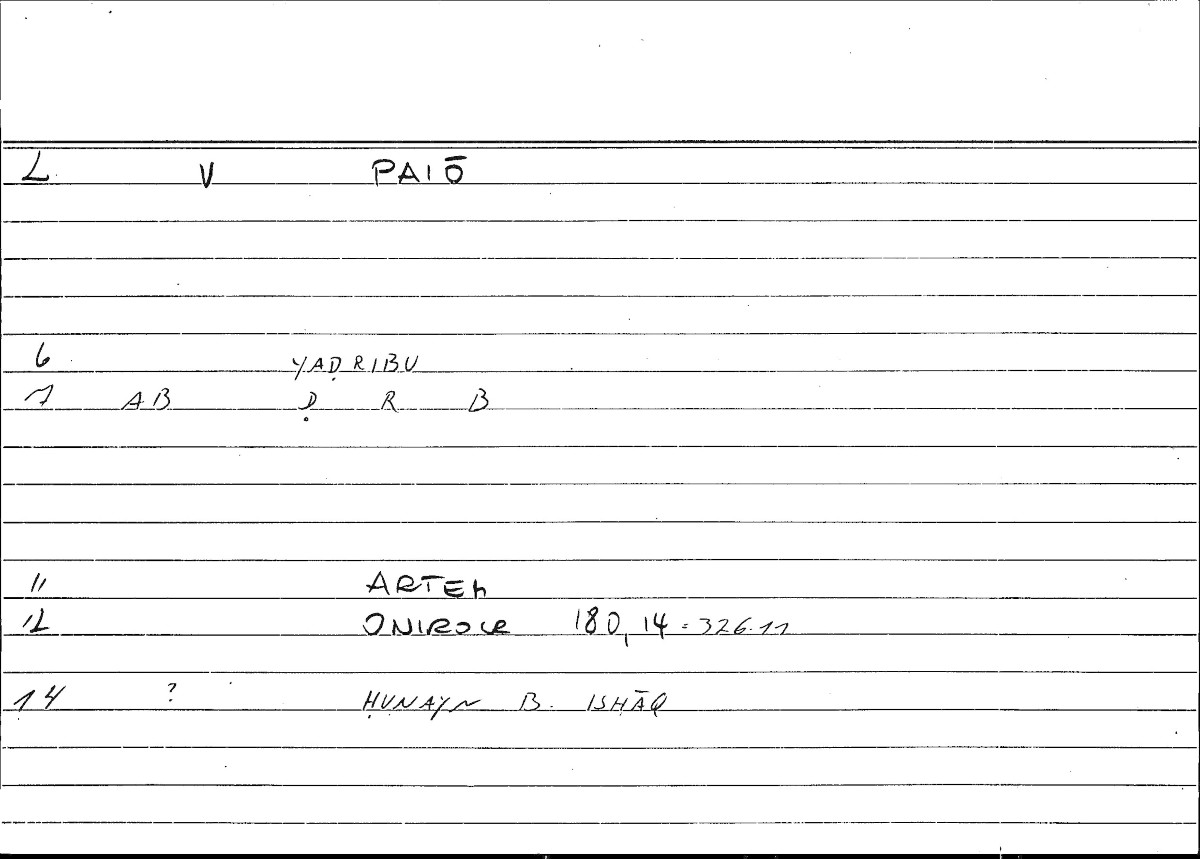 2 V PAIŌ
6 YAḌRIBU
7 AB Ḍ R B
11 ARTEM
12 ONIROCR 180,14 = 326.11
14 ? ḤUNAYN B. ISḤĀQ